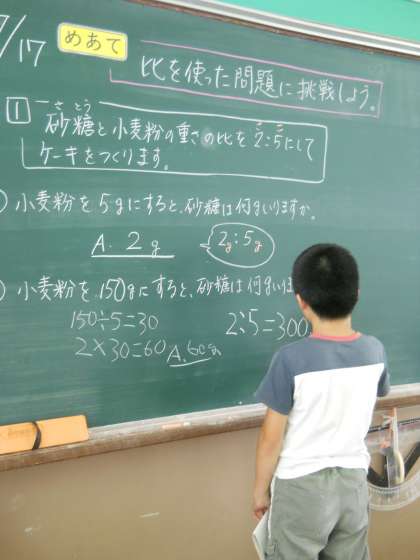 /17
めあて
比を使った問題に挑戦しよう。
1
さとう
砂糖と小麦粉の重さの比を2:5にして
ケーキをつくります。
小麦粉を5gにすると、砂糖は何gいりますか。
A. 2g
2g:5g
小麦粉を150gにすると、砂糖は何gいりま
150÷5=30
2×30=60 A.60g
2:5=300